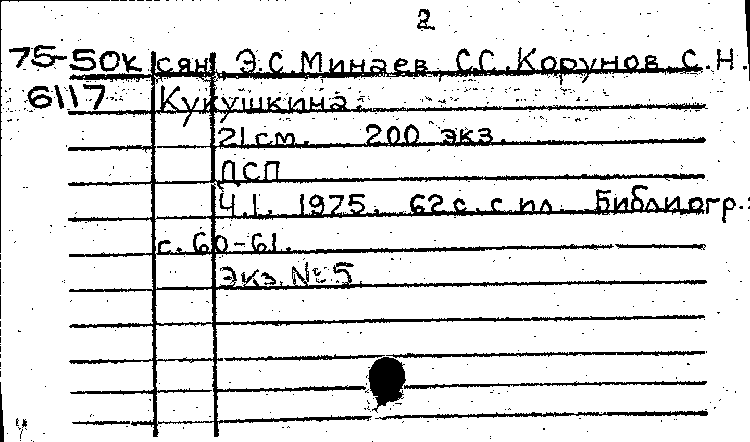 2
75-50к сян, Э.С.Минаев, С.С.Корунов, С.Н.
6117 Кукушкина.
21см. 200 экз.
ДСП
Ч.1. 1975. 62с. с ил. Библиогр.:
с. 60-61.
Экз.№5